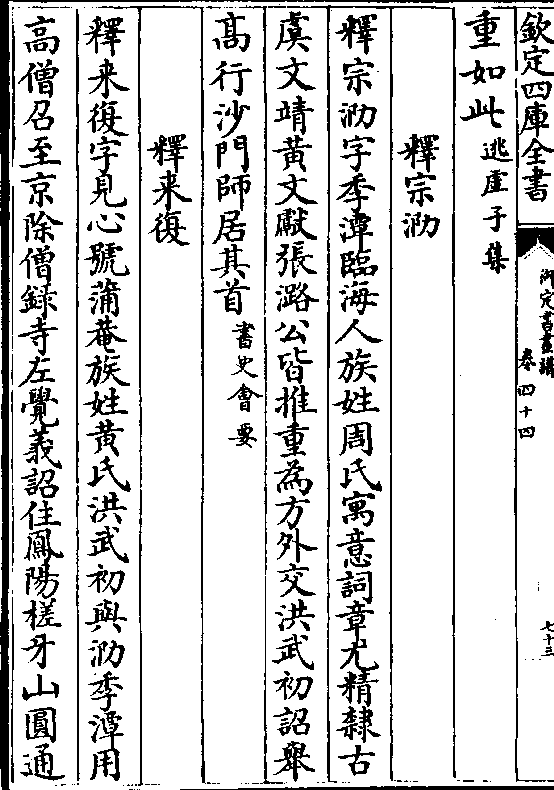 欽定四庫全書
御定書畫譜
卷四十四
七十三
重如此逃虛子集
釋宗泐
釋宗泐字季潭臨海人族姓周氏寓意詞章尤精隸古
虞文靖黃文獻張潞公皆推重為方外交洪武初詔舉
髙行沙門師居其首書史會要
釋来復
釋来復字見心號蒲菴族姓黃氏洪武初與泐季潭用
高僧召至京除僧録寺左覺義詔住鳳陽槎牙山圓通